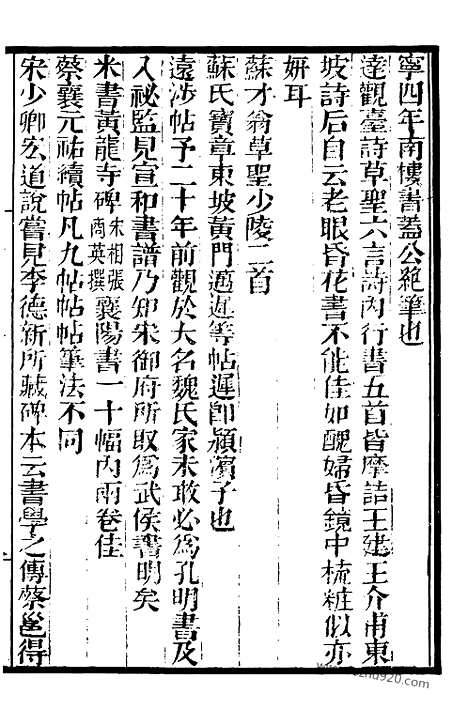 寧四年南樓書蓋公絶筆也
達觀臺詩草聖六言詩內行書五首皆摩詰王建王介甫東
坡詩后自云老眼昏花書不能佳如醜婦昏鏡中梳粧似亦
妍耳
蘇才翁草聖少陵二首
蘇氏寶章東坡黃門邁迨等帖遲卽潁濱子也
遠涉帖予二十年前觀於大名魏氏家未敢必爲孔明書及
入祕監見宣和書譜乃知宋御府所取爲武侯書明矣
米書黃龍寺碑宋相張商英撰襄陽書一十幅內兩卷佳
蔡襄元祐續帖凡九帖帖帖筆法不同
宋少卿宏道說嘗見李德新所藏碑本云書學之傳蔡邕得